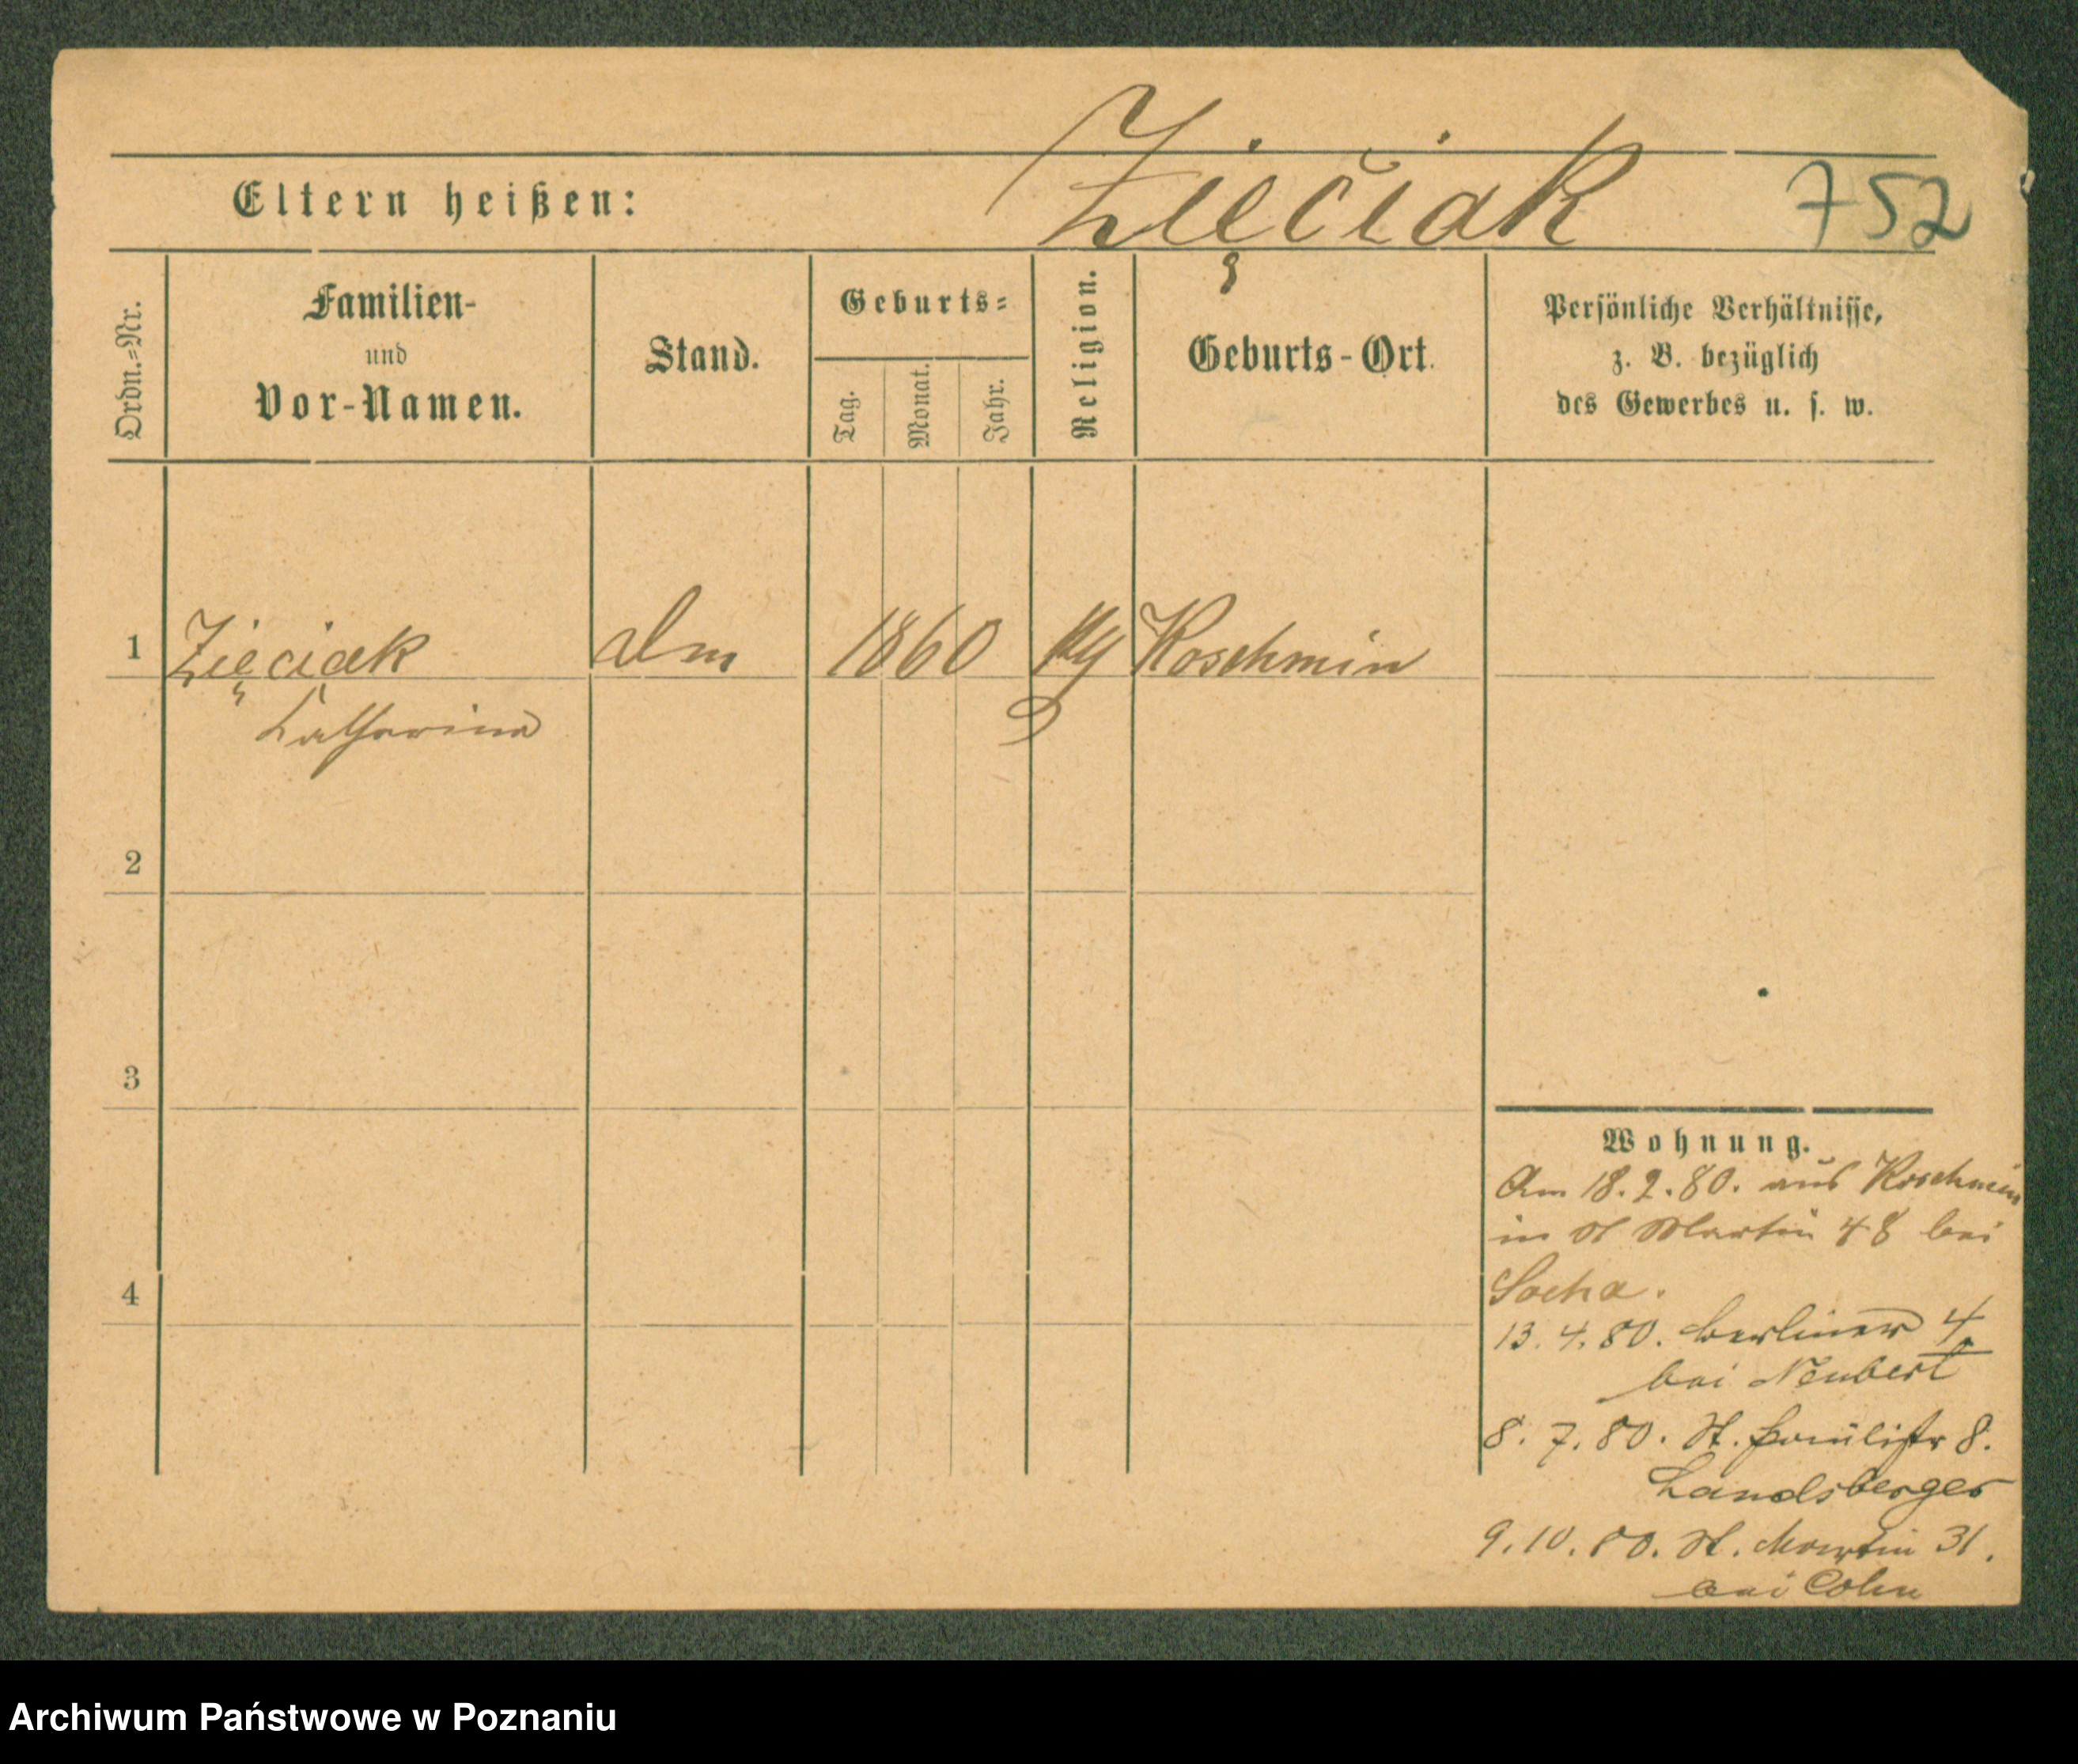 Zięciak
752
Eltern heißen:
Ordn.=Nr.
Familien-
und
Vor-Namen.
Stand.
Geburts=
Tag.
Monat.
Jahr.
Religion.
Geburts-Ort.
Persönliche Verhältnisse,
z. B. bezüglich
des Gewerbes u. s. w.
1 Zięciak 1860 Koschmin
Catharina
2
3
4
Wohnung.
Am 18.2.80. aus Koschmin
in St Martin 48 bei
Socha.
13.4.80. Berliner 4
bei Neubert
8.7.80. St. Paulistr 8.
Landsberger
9.10.80. St. Martin 31.
bei Cohn
Archiwum Państwowe w Poznaniu